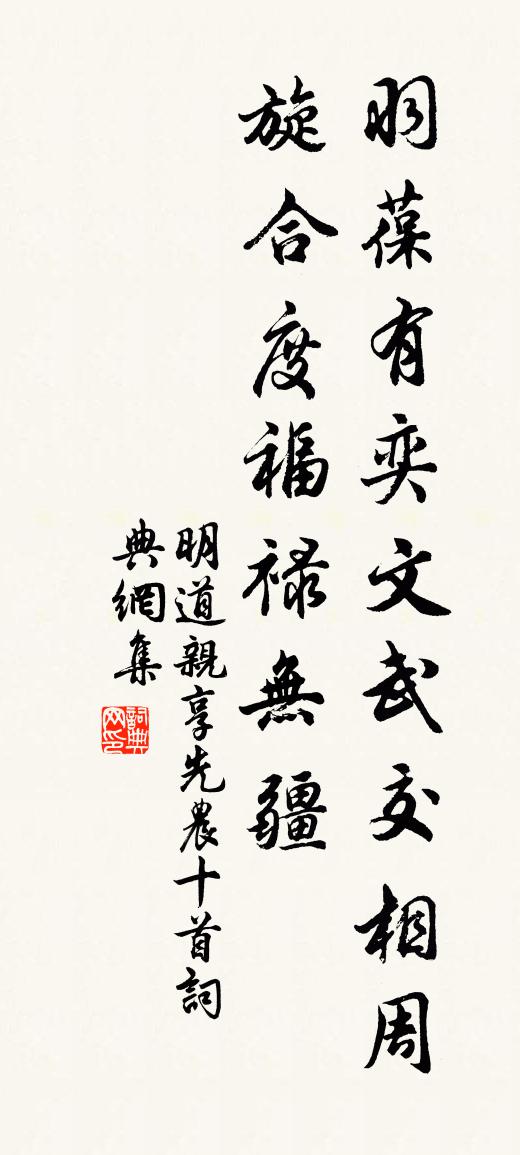 羽葆有奕文武交相周
旋合度福祿無疆
明道親享先農十首詞
典網集
詞典网印